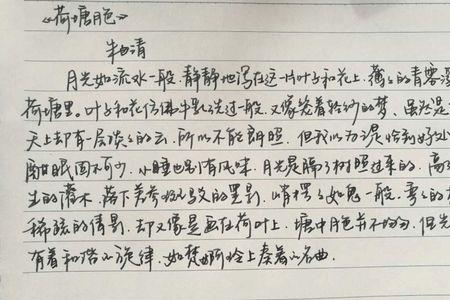 《荷塘月色》
朱自清
月光如流水一般,静静地泻在这一片叶子和花上。薄薄的青雾浮
荷塘里。叶子和花仿佛牛乳洗过一般,又像笼着轻纱的梦。虽然是
天上却有一层淡淡的云,所以不能朗照。但我以为这恰到好处
酣眠固不可少,小睡也别有风味。月光是隔了树照过来的,高
生的灌木,落下参差的斑驳的黑影,峭楞楞如鬼一般。弯弯的
稀疏的倩影,却又像是画在荷叶上。塘中月色并不均匀。但光
有着和谐的旋律,如梵婀玲上奏着的名曲。